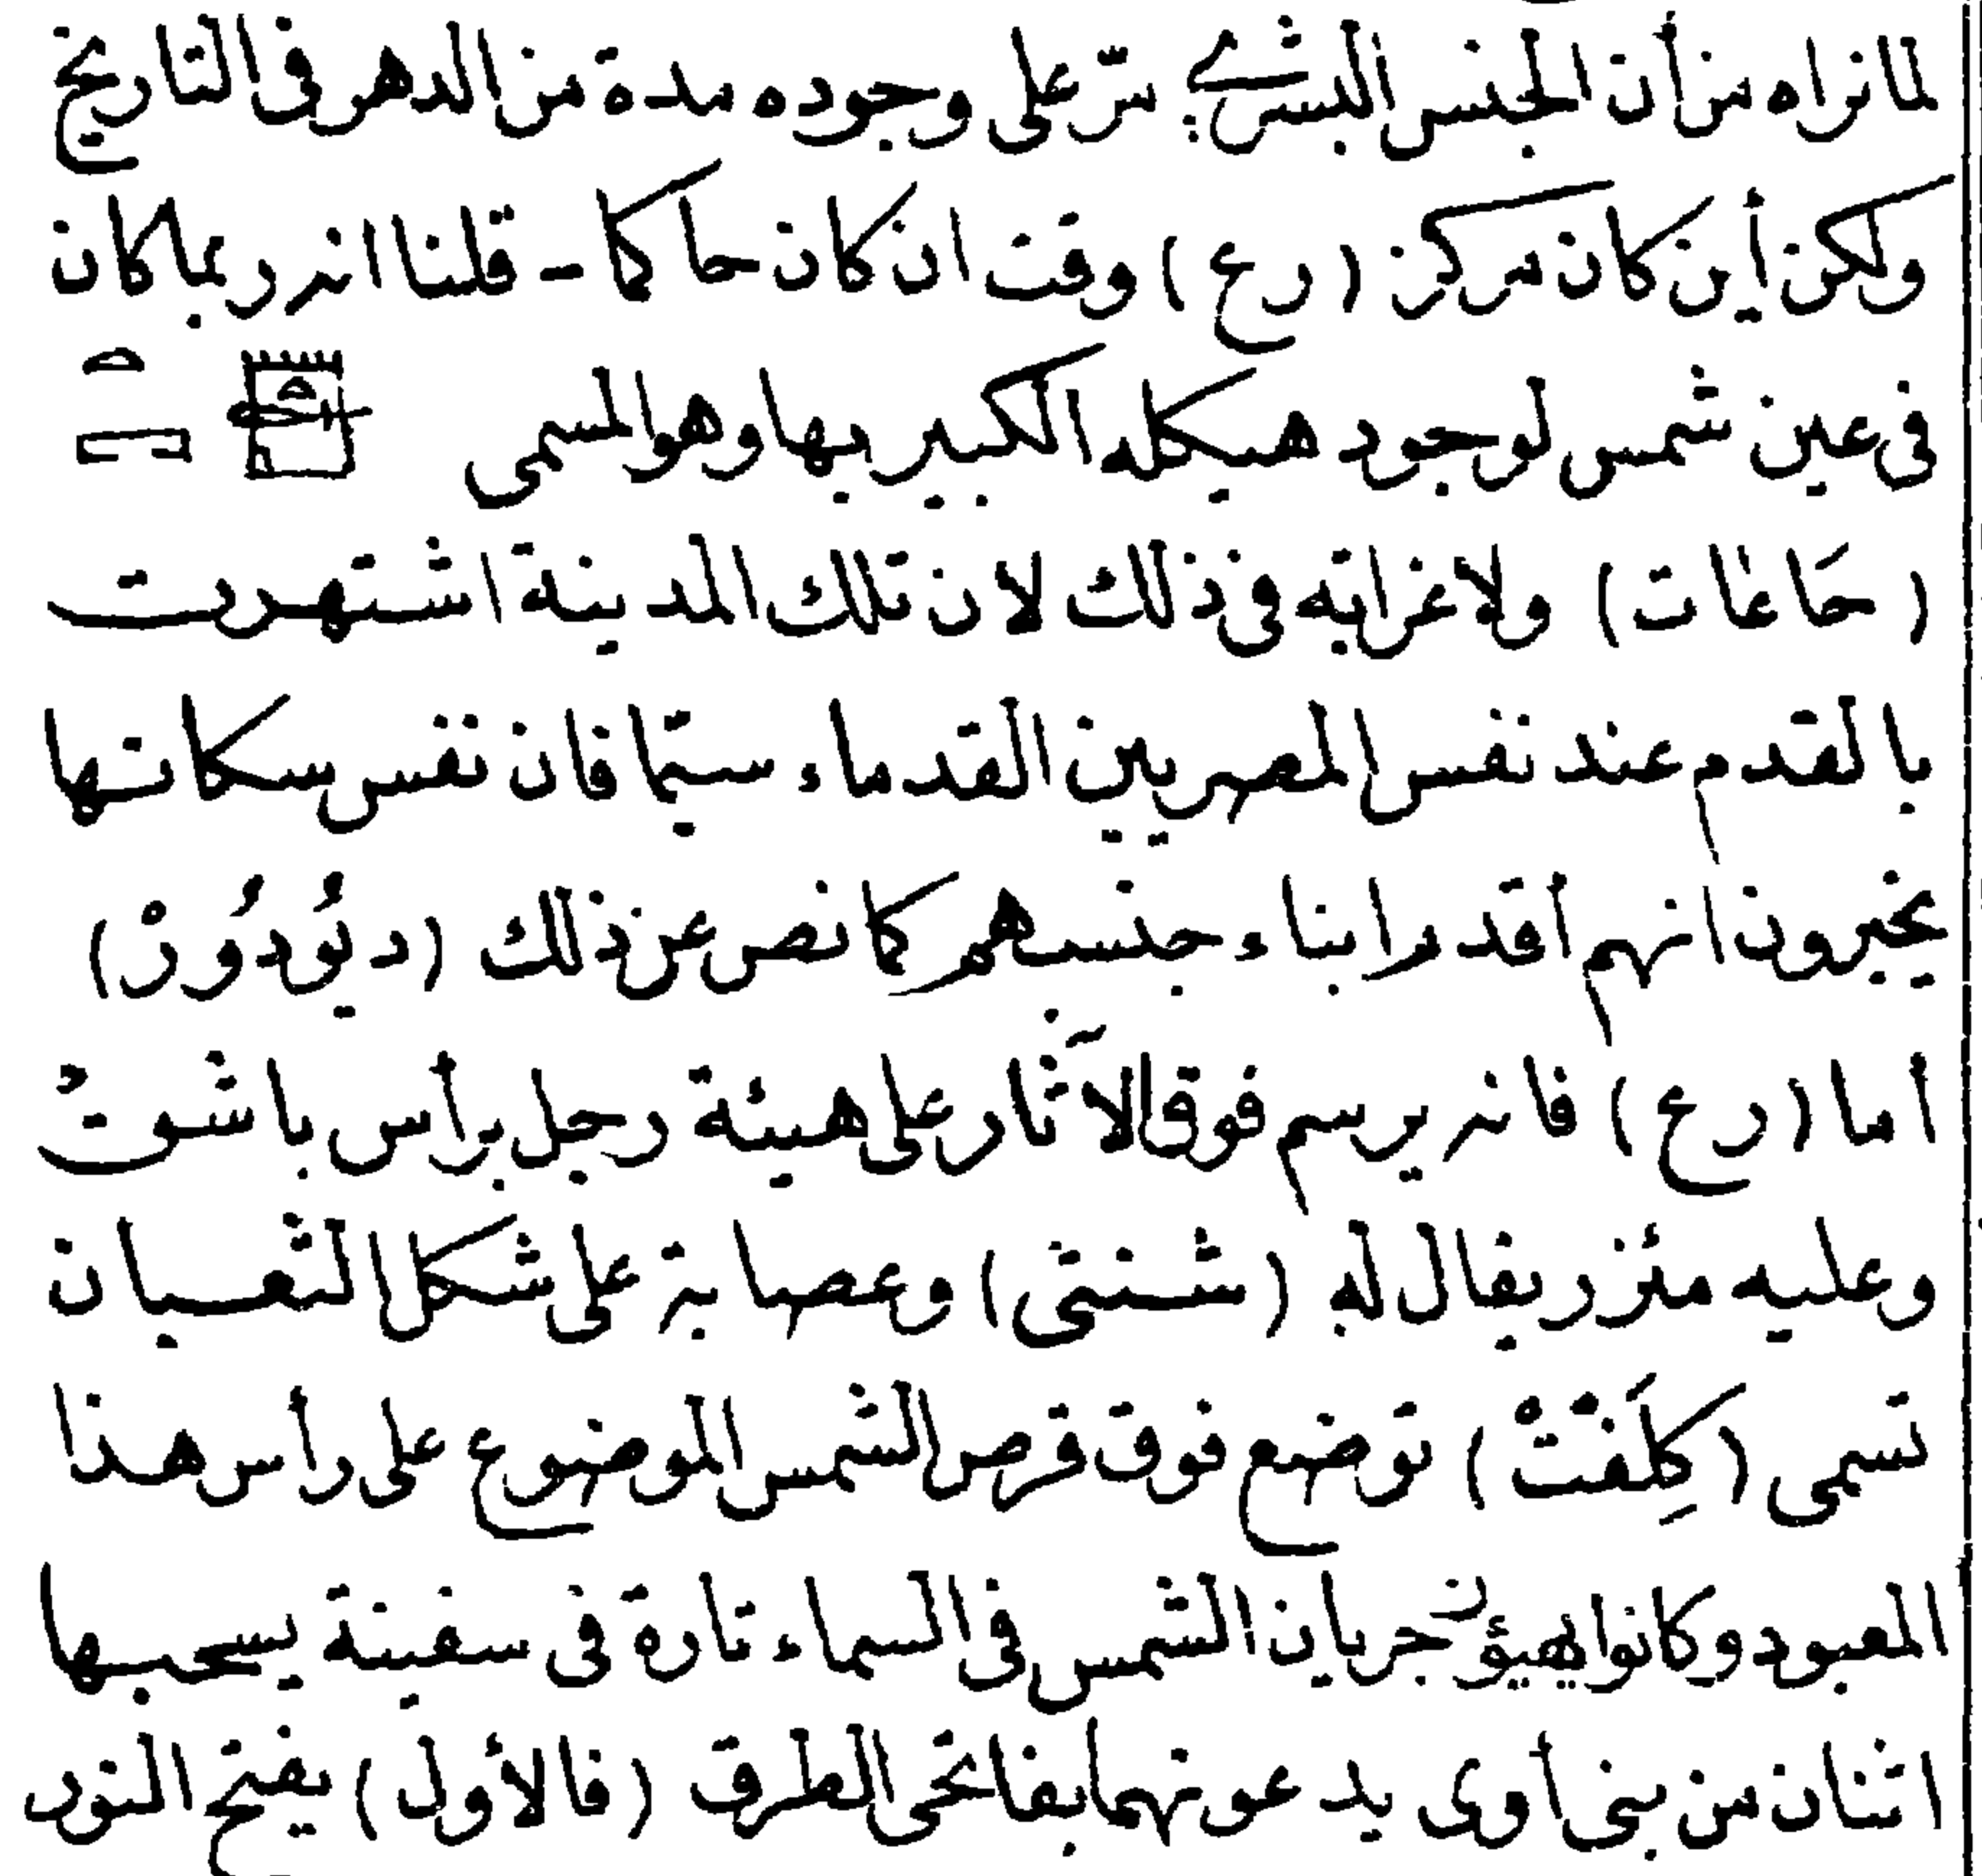 لما نراه من أن الجنس البشرى مرّ على وجوده مدة من الدهر فى التاريخ
ولكن أين كان مركز (رع) وقت ان كان حاكما - قلنا انه ربما كان
فى عين شمس لوجود هيكله الكبير بها وهو المسمى
(حَاعَات) ولا غرابه فى ذلك لان تلك المدينة اشتهرت
بالقدم عند نفس المصريين القدماء سيمّا فان نفس سكانها
يخبرون انهم أقدم ابناء جنسهم كما نص عن ذلك (ديُودُورْ)
أما (رع) فانه يرسم فوق الآثار على هيئة رجل برأس باشوت
وعليه مئزر يقال له (شنتى) وعصابة على شكل الثعبان
تسمى (كِلَفْتْ) توضع فوق قرص الشمس الموضوع على رأس هذا
المعبود وكانوا يهيؤن جريان الشمس فى السماء تارة فى سفينة يسحبها
اثنان من بنى أوى يدعونهما بفاتحى الطرق (فالأول) يفتح النور